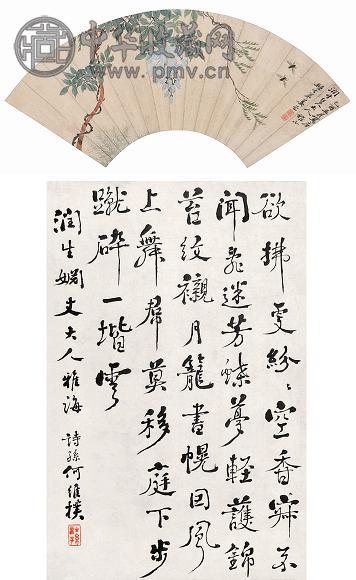 中华收藏网
www.pmv.cn
欲拂更紛〻空香寂不
聞飛迷芳蝶夢輕護錦
苔紋襯月籠書幌回風
上舞裙莫移庭下步
蹴碎一堦雲
潤生姻丈大人雅誨 詩孫何維樸